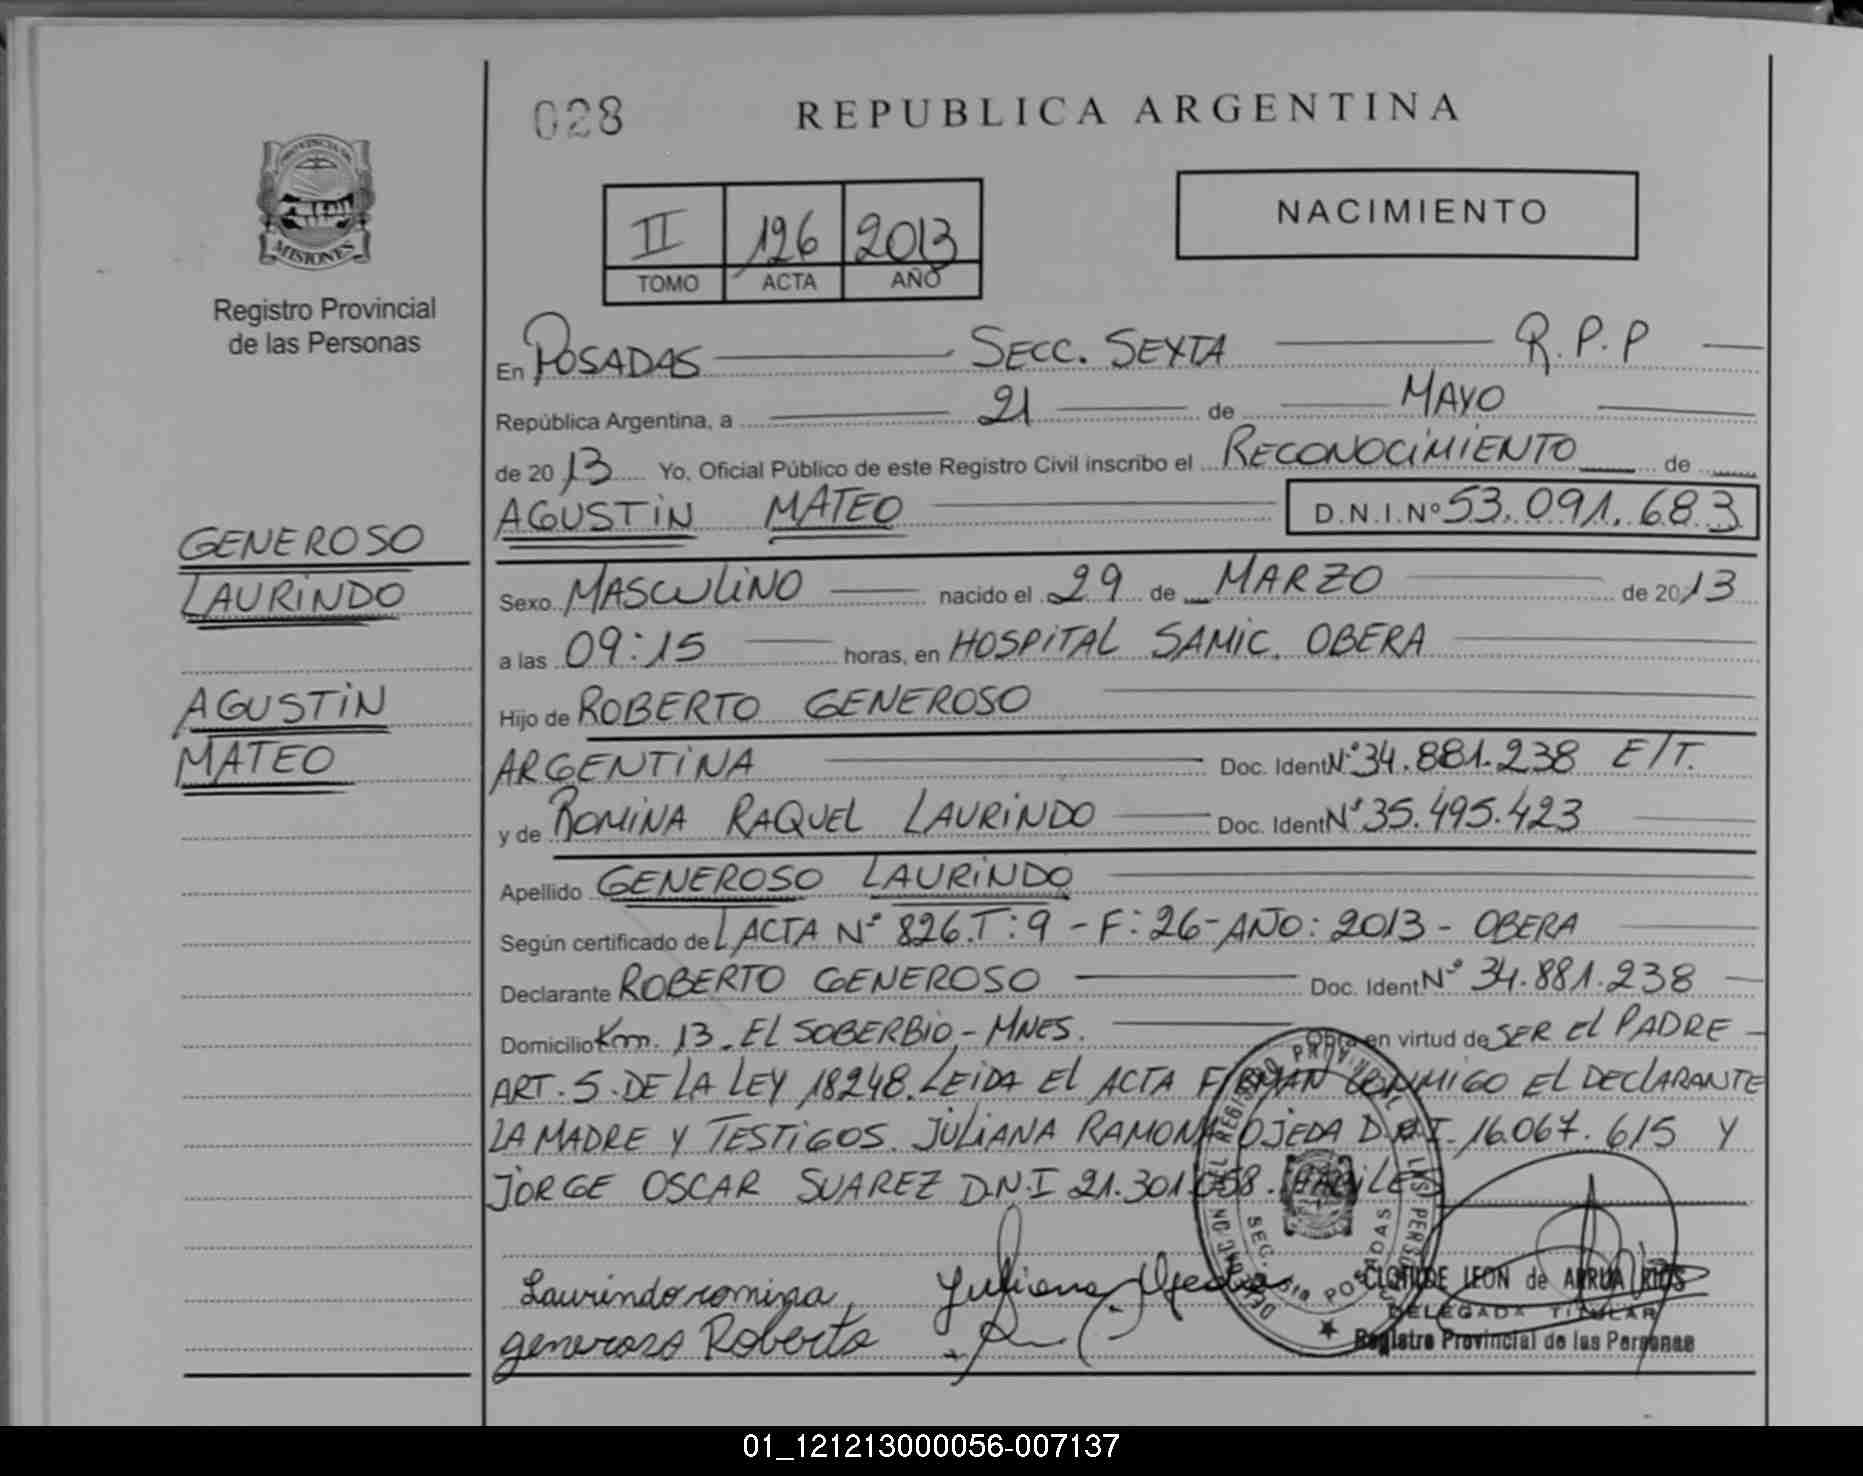 028
REPUBLICA ARGENTINA
PROVINCIA DE
MISIONES
Registro Provincial
de las Personas
II 126 2013
TOMO ACTA AÑO
NACIMIENTO
En POSADAS SECC. SEXTA R.P.P
República Argentina, a 21 de MAYO
de 2013 Yo, Oficial Público de este Registro Civil inscribo el RECONOCIMIENTO de
AGUSTIN MATEO D.N.I.Nº 53.091.683
GENEROSO
LAURINDO
AGUSTIN
MATEO
Sexo MASCULINO nacido el 29 de MARZO de 2013
a las 09:15 horas, en HOSPITAL SAMIC. OBERA
Hijo de ROBERTO GENEROSO
ARGENTINA Doc. Ident Nº 34.881.238 E/T.
y de ROMINA RAQUEL LAURINDO Doc. Ident Nº 35.495.423
Apellido GENEROSO LAURINDO
Según certificado de ACTA Nº 826.T:9 - F:26 - AÑO: 2013 - OBERA
Declarante ROBERTO GENEROSO Doc. Ident Nº 34.881.238
Domicilio Km. 13. EL SOBERBIO - MNES. Obra en virtud de SER EL PADRE
ART. 5. DE LA LEY 18248. LEIDA EL ACTA FIRMAN CONMIGO EL DECLARANTE
LA MADRE Y TESTIGOS. JULIANA RAMONA OJEDA D.N.I. 16.067.615 Y
JORGE OSCAR SUAREZ D.N.I 21.301.058. HABILES
Laurindo romina Yuliana Ojeda
generoso Roberto
CLOTILDE LEON de ARRUA RIOS
DELEGADA TITULAR
Registro Provincial de las Personas
01_121213000056-007137